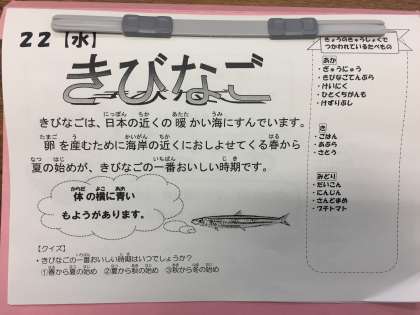 22【水】
きびなご
きびなごは、日本の近くの暖かい海にすんでいます。
卵を産むために海岸の近くにおしよせてくる春から
夏の始めが、きびなごの一番おいしい時期です。
体の横に青い
もようがあります。
【クイズ】
・きびなごの一番おいしい時期はいつでしょうか？
①春から夏の始め ②夏から秋の始め ③秋から冬の始め
きょうのきゅうしょくで
つかわれているたべもの
あか
・ぎゅうにゅう
・きびなごてんぷら
・けいにく
・ひとくちがんも
・けずりぶし
き
・ごはん
・あぶら
・さとう
みどり
・だいこん
・にんじん
・さんどまめ
・プチトマト